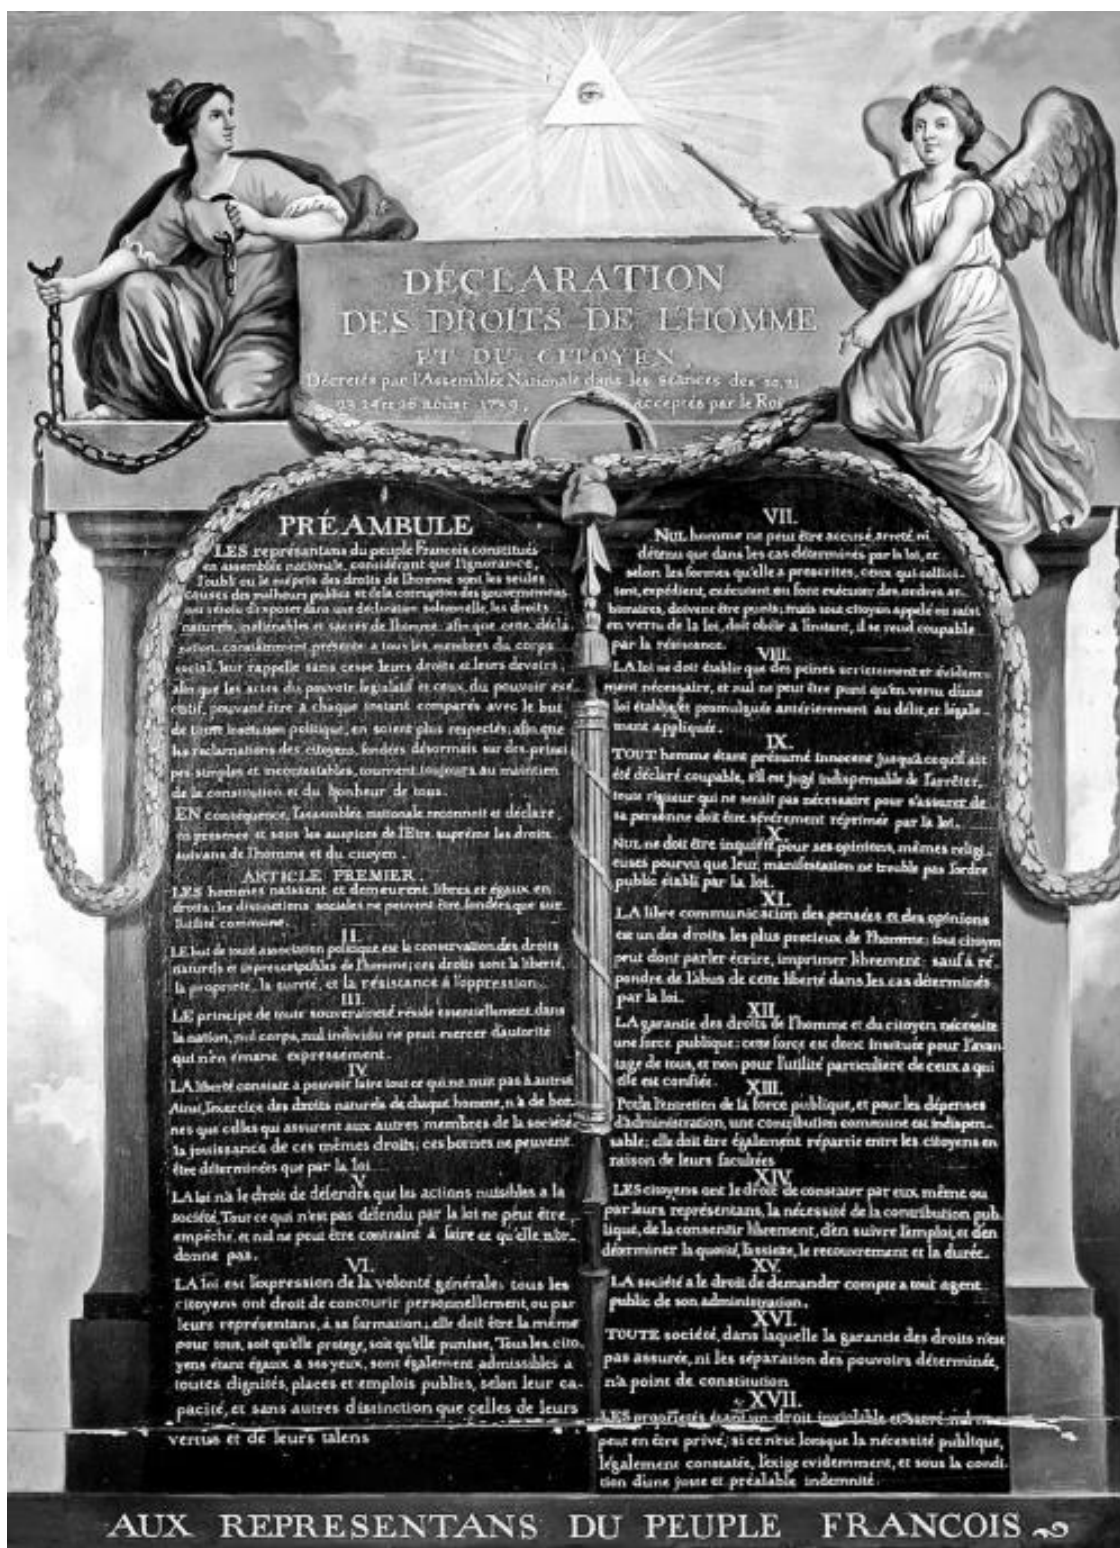 DÉCLARATION
DES DROITS DE L'HOMME
ET DU CITOYEN,
Décretés par l'Assemblée Nationale dans les séances des 20, 21
23, 24 et 26 août 1789, acceptés par le Roi
PRÉAMBULE
LES représentans du peuple François constitués
en assemblée nationale, considérant que l'ignorance,
l'oubli ou le mépris des droits de l'homme sont les seules
causes des malheurs publics et de la corruption des gouvernemens
ont résolu d'exposer dans une déclaration solemnelle, les droits
naturels, inaliénables et sacrés de l'homme: afin que cette décla
ration, constamment présente a tous les membres du corps
social, leur rappelle sans cesse leurs droits et leurs devoirs;
afin que les actes du pouvoir législatif et ceux du pouvoir exé
cutif, pouvant être a chaque instant comparés avec le but
de toute institution politique, en soient plus respectés; afin que
les réclamations des citoyens, fondées désormais sur des princi
pes simples et incontestables, tournent toujours au maintien
de la constitution et du bonheur de tous.
EN conséquence, l'assemblée nationale reconnoit et déclare
en presence et sous les auspices de l'Etre suprême les droits
suivans de l'homme et du citoyen.
ARTICLE PREMIER.
LES hommes naissent et demeurent libres et égaux en
droits; les distinctions sociales ne peuvent être fondées que sur
l'utilité commune.
II.
LE but de toute association politique est la conservation des droits
naturels et imprescriptibles de l'homme; ces droits sont la liberté,
la propriété, la sureté, et la résistance à l'oppression.
III.
LE principe de toute souveraineté réside essentiellement dans
la nation, nul corps, nul individu ne peut exercer d'autorité
qui n'en émane expressement.
IV.
LA liberté consiste a pouvoir faire tout ce qui ne nuit pas à autrui
Ainsi, l'exercice des droits naturels de chaque homme, n'a de bor
nes que celles qui assurent aux autres membres de la société
la jouissance de ces mêmes droits; ces bornes ne peuvent
être déterminées que par la loi
V.
LA loi n'a le droit de défendre que les actions nuisibles a la
société. Tout ce qui n'est pas défendu par la loi ne peut être
empêché, et nul ne peut être contraint à faire ce qu'elle n'or-
donne pas.
VI.
LA loi est l'expression de la volonté générale; tous les
citoyens ont droit de concourir personnellement, ou par
leurs représentans, à sa formation; elle doit être la même
pour tous, soit qu'elle protege, soit qu'elle punisse, Tous les cito
yens étant égaux a ses yeux, sont également admissibles a
toutes dignités, places et emplois publics, selon leur ca-
pacité, et sans autres distinction que celles de leurs
vertus et de leurs talens
VII.
NUL homme ne peut être accusé, arreté ni
détenu que dans les cas déterminés par la loi, et
selon les formes qu'elle a prescrites, ceux qui sollici-
tent, expédient, exécutent ou font exécuter des ordres ar-
bitraires, doivent être punis; mais tout citoyen appelé ou saisi
en vertu de la loi, doit obéir a l'instant, il se rend coupable
par la résistance.
VIII.
LA loi ne doit établir que des peines strictement et évidem-
ment nécessaire, et nul ne peut être puni qu'en vertu d'une
loi établie et promulguée antérierement au délit, et légale-
ment appliquée.
IX.
TOUT homme étant présumé innocent jusqu'à ce qu'il ait
été déclaré coupable, s'il est jugé indispensable de l'arrêter,
toute rigueur qui ne serait pas nécessaire pour s'assurer de
sa personne doit être sévèrement réprimée par la loi.
X.
NUL ne doit être inquiété pour ses opinions, mêmes religi-
euses pourvu que leur manifestation ne trouble pas l'ordre
public établi par la loi.
XI.
LA libre communication des pensées et des opinions
est un des droits les plus precieux de l'homme: tout citoyen
peut dont parler écrire, imprimer librement: sauf à ré
pondre de l'abus de cette liberté dans les cas déterminés
par la loi.
XII.
LA garantie des droits de l'homme et du citoyen nécessite
une force publique: cette force est donc instituée pour l'avan
tage de tous, et non pour l'utilité particuliere de ceux a qui
elle est confiée.
XIII.
POUR l'entretien de la force publique, et pour les dépenses
d'administration, une contribution commune est indispen-
sable: elle doit être également répartie entre les citoyens en
raison de leurs facultées
XIV.
LES citoyens ont le droit de constater par eux même ou
par leurs représentans, la nécessité de la contribution pub
lique, de la consentir librement, d'en suivre l'emploi, et d'en
déterminer la quotité, l'assiete, le recouvrement et la durée.
XV.
LA société a le droit de demander compte a tout agent
public de son administration.
XVI.
TOUTE société, dans laquelle la garantie des droits n'est
pas assurée, ni les séparation des pouvoirs déterminée,
n'a point de constitution
XVII.
LES propriétés étant un droit inviolable et sacré, nul ne
peut en être privé, si ce n'est lorsque la nécessité publique,
légalement constatée, l'exige evidemment, et sous la condi-
tion d'une juste et préalable indemnité.
AUX REPRESENTANS DU PEUPLE FRANCOIS